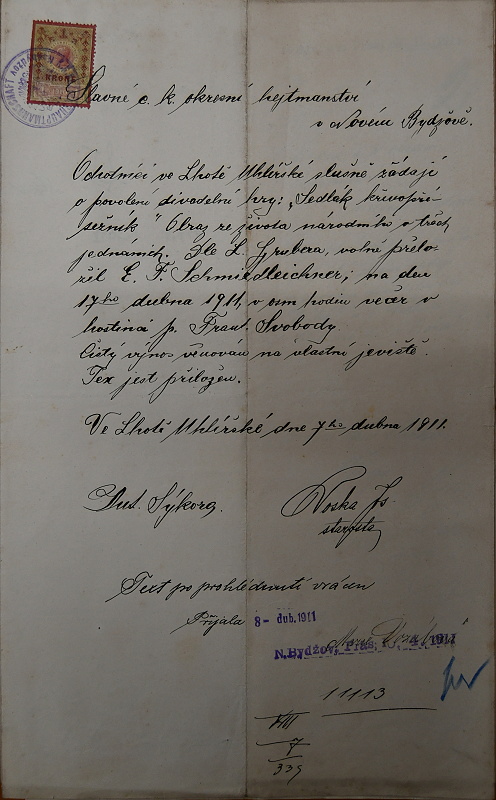 1
KRONE
Slavné c. k. okresní hejtmanství
v Novém Bydžově.
Ochotníci ve Lhotě Uhlířské slušně žádají
o povolení divadelní hry: „Sedlák křivopří-
sežník" Obraz ze života národního o třech
jednáních. Dle L. Grubera, volně přelo-
žil E. F. Schmiedleichner; na den
17ho dubna 1911, v osm hodin večer v
hostinci p. Frant. Svobody.
Čistý výnos věnován na vlastní jeviště.
Tex jest přiložen.
Ve Lhotě Uhlířské dne 7ho dubna 1911.
Ant. Sýkora.
Noska Js
starosta
Text po prohlédnutí vrácen
Přijala
8- dub. 1911
N. Bydžov, 4. 1911
11113
VIII
7
339